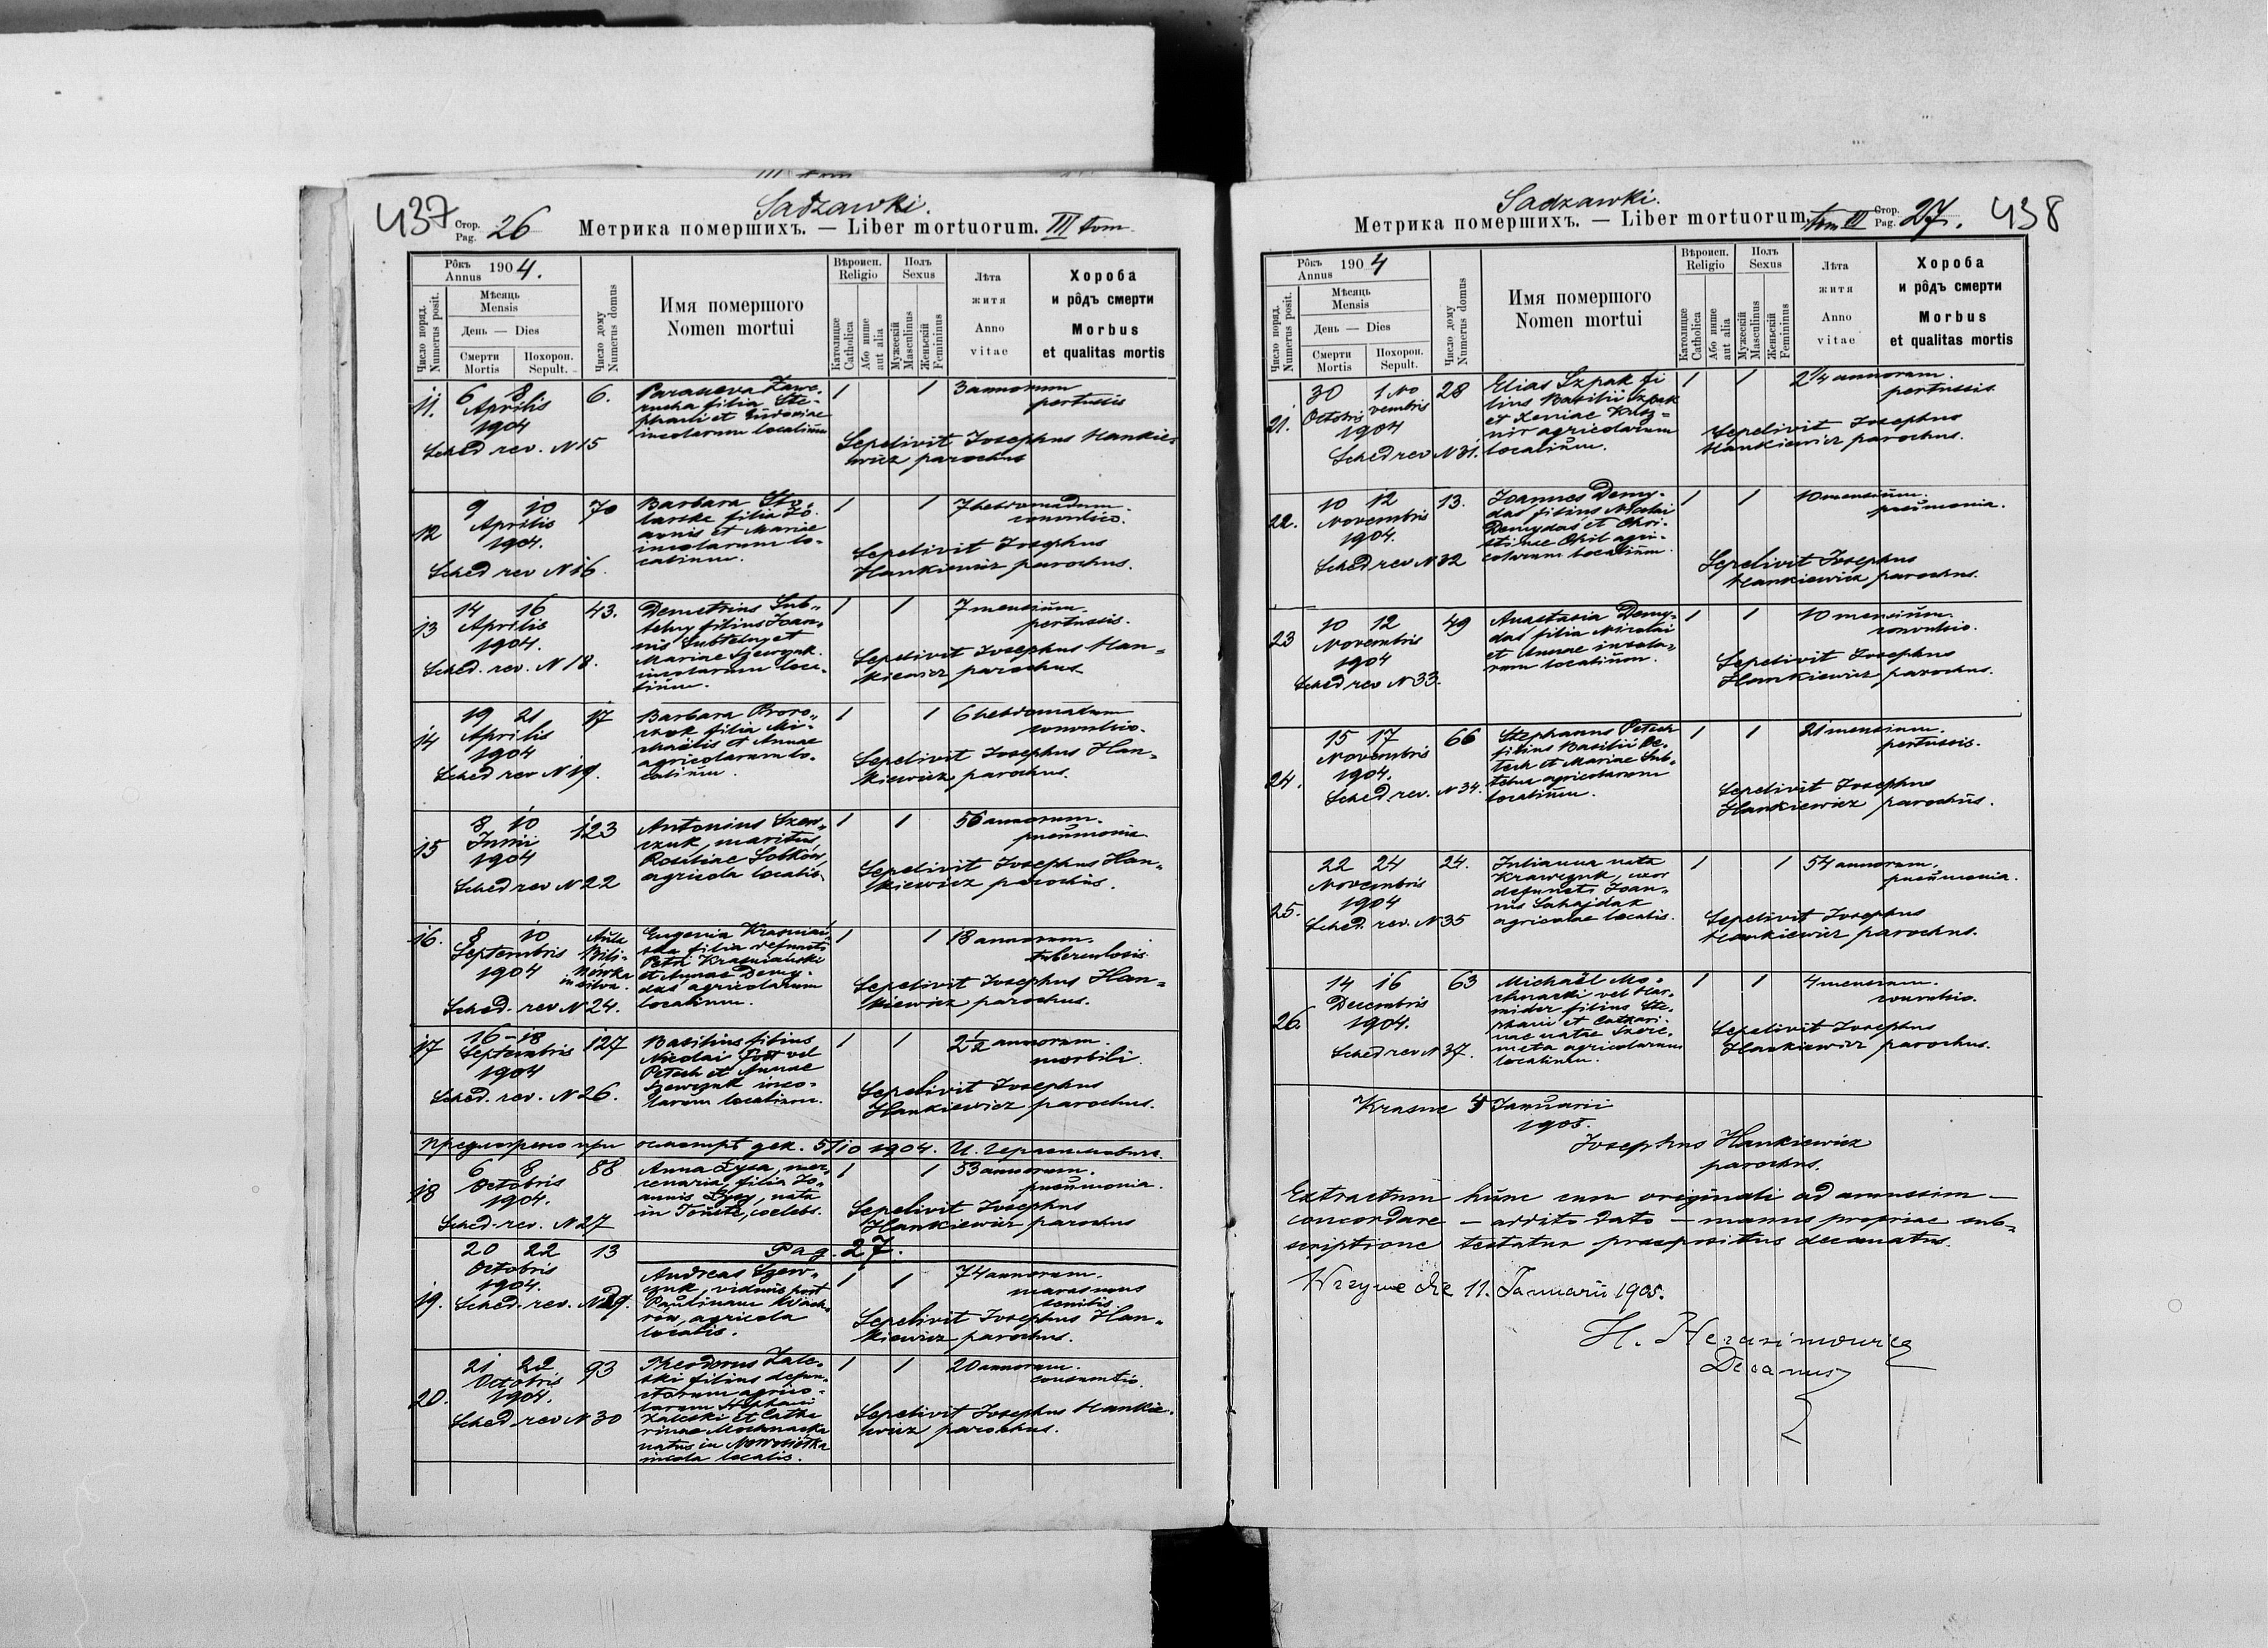 437
Стор.
Pag. 26
Sadzawki.
Метрика помершихъ. — Liber mortuorum. III tom
Рôкъ
Annus 1904.
Мѣсяць
Mensis
День — Dies
Смерти
Mortis
Похорон.
Sepult.
Число поряд.
Numerus posit.
Число дому
Numerus domus
Имя помершого
Nomen mortui
Вѣроисп.
Religio
Католицке
Catholica
Або инше
aut alia
Полъ
Sexus
Мужескій
Masculinus
Женьскій
Femininus
Лѣта
житя
Anno
vitae
Хороба
и рôдъ смерти
Morbus
et qualitas mortis
11. 6 8 Aprilis 1904
Sched rev. N 15
6.
Parasceva Zawe-
rucha filia Ste-
phani et Eudoxiae
incolarum localium
1 1
3 annorum
pertussis
Sepelivit Josephus Hankie-
wicz parochus
12 9 10 Aprilis 1904.
Sched rev N 16.
70
Barbara Sto-
larska filia Jo-
annis et Mariae
incolarum lo-
calium.
1 1
7 hebdomadum.
convulsio.
Sepelivit Josephus
Hankiewicz parochus.
13 14 16 Aprilis 1904.
Sched. rev. N 18.
43.
Demetrius Sub-
telny filius Joan-
nis Subtelny et
Mariae Szewczuk
incolarum loca-
lium.
1 1
7 mensium.
pertussis.
Sepelivit Josephus Han-
kiewicz parochus
14 19 21 Aprilis 1904
Sched rev N 19.
17
Barbara
filia Mi-
chaëlis et Annae
agricolarum lo-
calium.
1 1
6 hebdomadum
convulsio.
Sepelivit Josephus Han-
kiewicz parochus.
15 8 10 Junii 1904
Sched rev N 22
123
Antonius Szew-
czuk, maritus
Rosaliae Sobków,
agricola localis.
1 1
56 annorum.
pneumonia.
Sepelivit Josephus Han-
kiewicz parochus.
16. 8 10 Septembris 1904
Sched. rev N 24.
in silva.
Eugenia Krasniań-
ska filia defuncti
Petri Krasniański
et Annae Demy-
das agricolarum
localium.
1 1
18 annorum.
tuberculosis.
Sepelivit Josephus Han-
kiewicz parochus.
17 16-18 Septembris 1904
Sched. rev. N 26.
127
Basilius filius
Nicolai Pet vel
Petech et Annae
Szewczuk inco-
larum localium.
1 1
2½ annorum.
morbili.
Sepelivit Josephus
Hankiewicz parochus.
дек. 5/10 1904. И. Герасимовичъ.
18 6 8 Octobris 1904.
Sched. rev. N 27
88
Anna Łysa, mer-
cenaria, filia Jo-
annis Łysy, nata
in Touste, coelebs.
1 1
53 annorum.
pneumonia.
Sepelivit Josephus
Hankiewicz parochus
Pag. 27.
19. 20 22 Octobris 1904.
Sched. rev. N 29.
13
Andreas Szew-
czuk, viduus post
Paulinam
agricola
localis.
1 1
74 annorum.
marasmus
senilis.
Sepelivit Josephus Han-
kiewicz parochus.
20. 21 22 Octobris 1904.
Sched rev N 30
93
Theodorus Zale-
ski filius defun-
ctorum agrico-
larum Stephani
Zaleski et Catha-
rinae Mochnacka
natus in Nowosiółka
incola localis.
1 1
20 annorum.
consumtio.
Sepelivit Josephus Hankie-
wicz parochus.
438
Стор.
Pag. 27.
Sadzawki.
Метрика помершихъ. — Liber mortuorum. tom III
Рôкъ
Annus 1904
Мѣсяць
Mensis
День — Dies
Смерти
Mortis
Похорон.
Sepult.
Число поряд.
Numerus posit.
Число дому
Numerus domus
Имя помершого
Nomen mortui
Вѣроисп.
Religio
Католицке
Catholica
Або инше
aut alia
Полъ
Sexus
Мужескій
Masculinus
Женьскій
Femininus
Лѣта
житя
Anno
vitae
Хороба
и рôдъ смерти
Morbus
et qualitas mortis
21. 30 Octobris 1 Novembris 1904
Sched rev N 31.
28
Elias Szpak fi-
lius Basilii Szpak
et Xeniae Kusz-
nir agricolarum
localium.
1 1
2¼ annorum.
pertussis.
Sepelivit Josephus
Hankiewicz parochus.
22. 10 12 Novembris 1904.
Sched rev N 32
13.
Joannes Demy-
das filius Nicolai
Demydas et Chri-
stinae agri-
colarum localium.
1 1
10 mensium.
pneumonia.
Sepelivit Josephus
Hankiewicz parochus.
23 10 12 Novembris 1904
Sched rev N 33.
49
Anastasia Demy-
das filia Nicolai
et Annae incola-
rum localium.
1 1
10 mensium.
convulsio.
Sepelivit Josephus
Hankiewicz parochus.
24. 15 17 Novembris 1904.
Sched. rev. N 34.
66
Stephanus Petech
filius Basilii Pe-
tech et Mariae Sub-
telna agricolarum
localium.
1 1
21 mensium.
pertussis.
Sepelivit Josephus
Hankiewicz parochus.
25. 22 24 Novembris 1904
Sched. rev. N 35
24.
Julianna nata
Krawczuk, uxor
defuncti Joan-
nis Sahajdak
agricolae localis.
1 1
54 annorum.
pneumonia.
Sepelivit Josephus
Hankiewicz parochus.
26. 14 16 Decembris 1904.
Sched rev N 37.
63
Michaël Mo-
chnacki vel
filius Ste-
phani et Cathari-
nae natae Szere-
meta agricolarum
localium.
1 1
4 mensium.
convulsio.
Sepelivit Josephus
Hankiewicz parochus.
Krasne 5 Januarii
1905.
Josephus Hankiewicz
parochus.
Extractum hunc cum originali ad amussim —
concordare — addito dato — manus propriae sub-
scriptione testatur praepositus decanatus.
die 11. Januarii 1905.
H. Herasimowicz
Decanus